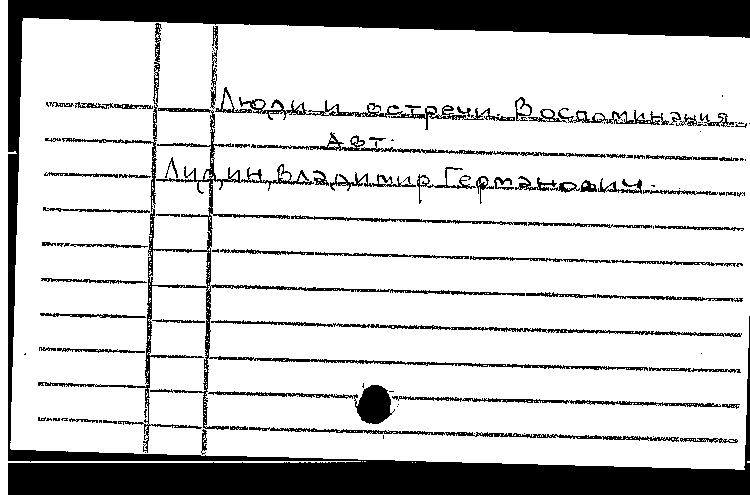 Люди и встречи. Воспоминания.
Авт.
Лидин, Владимир Германович.